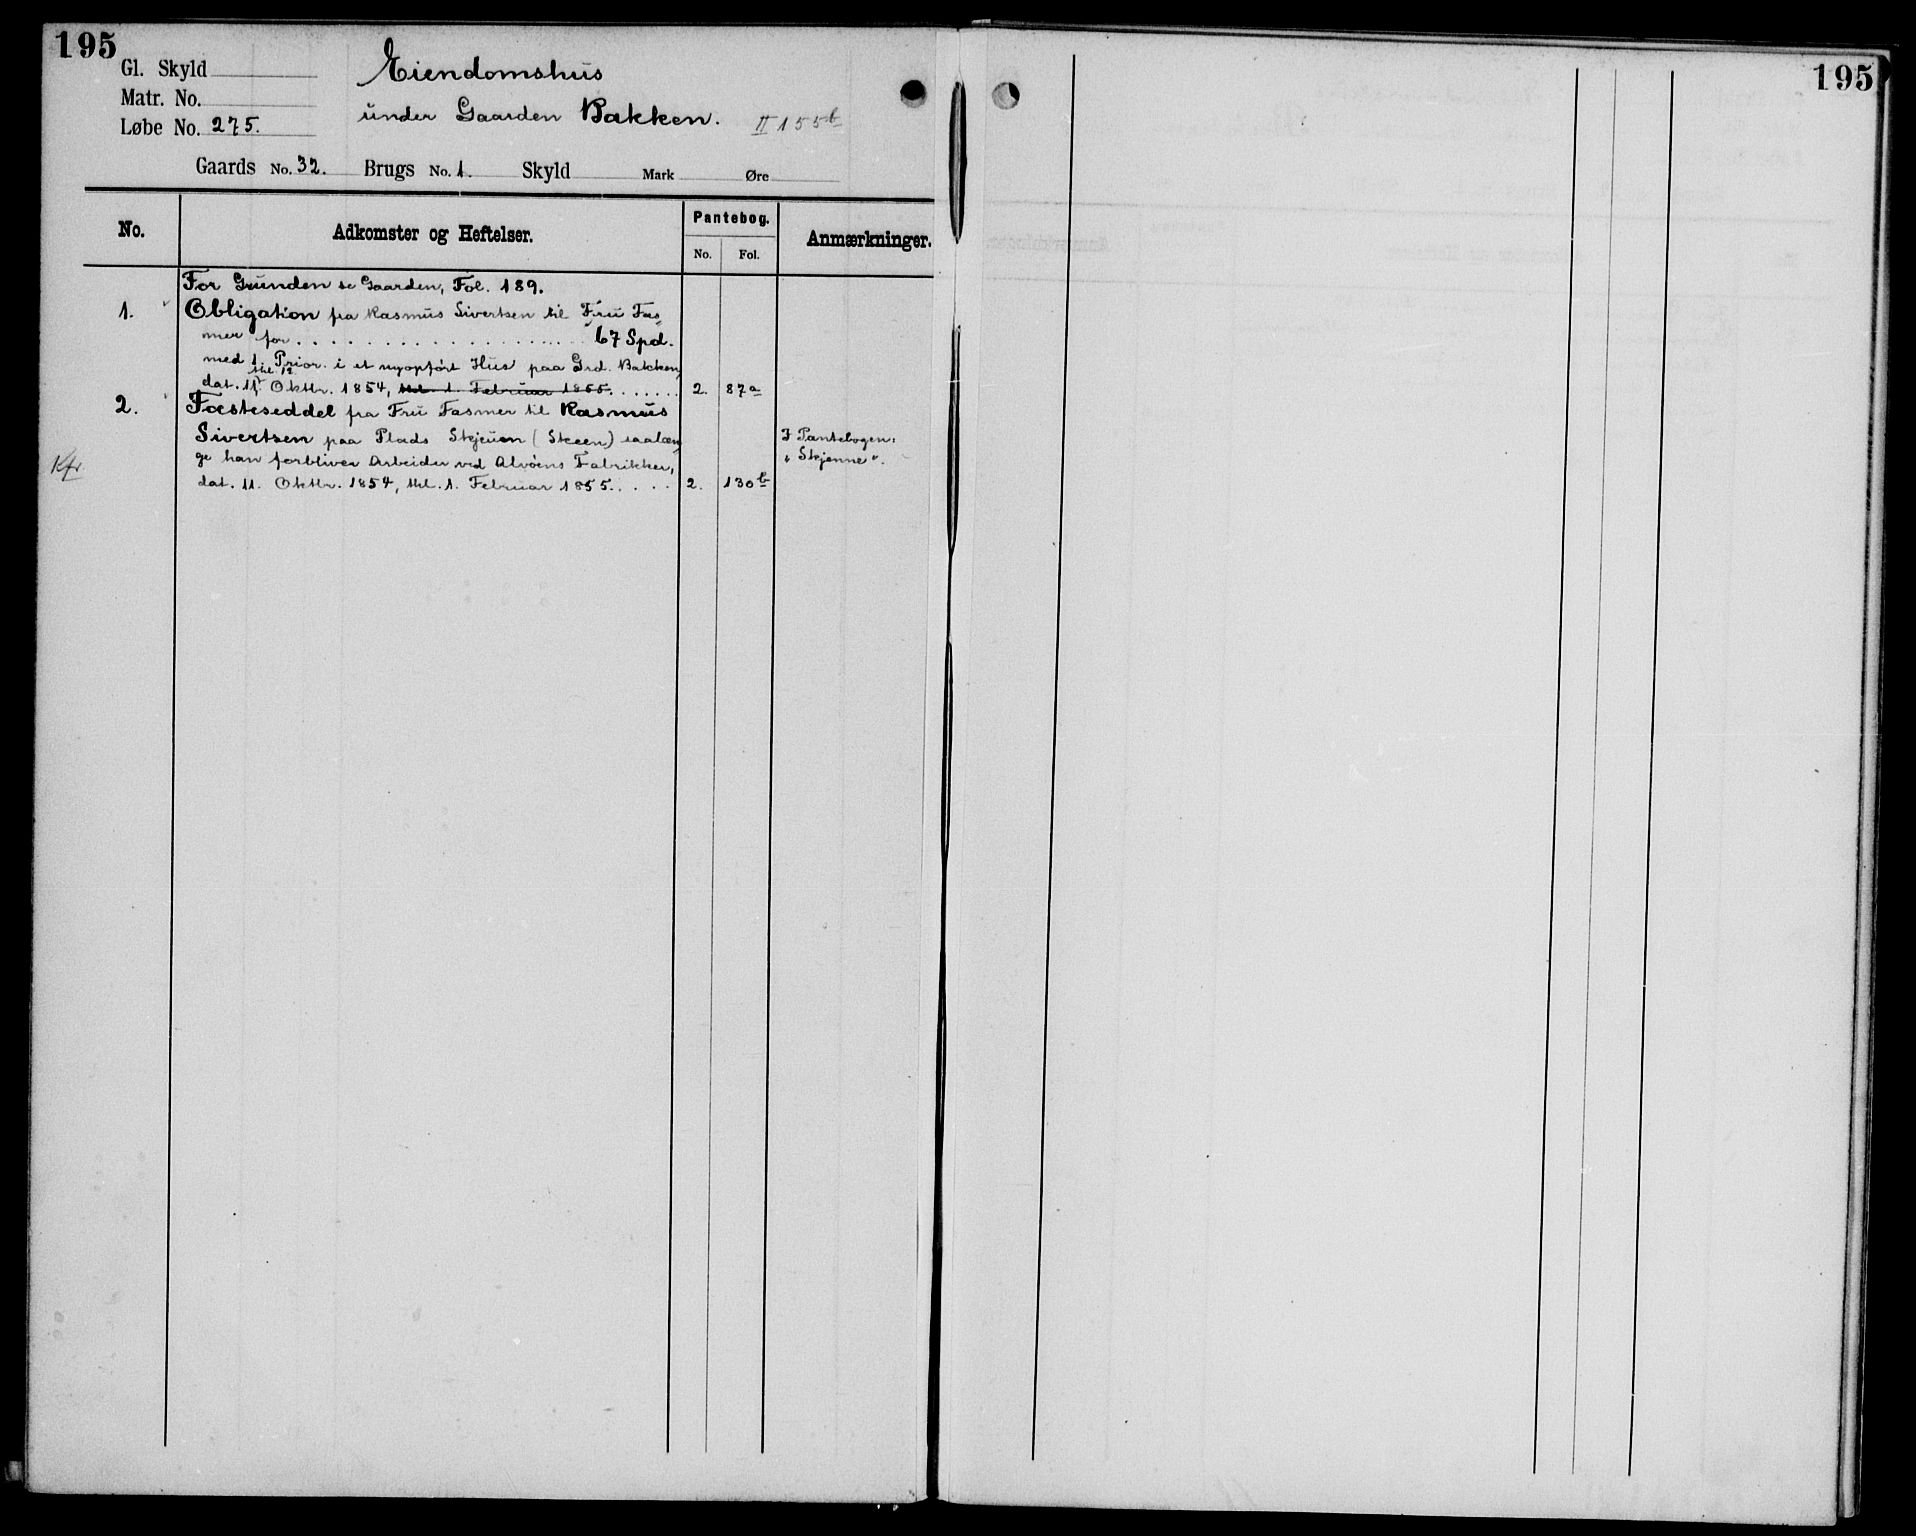 195
Gl. Skyld
Matr. No.
Løbe No. 275.
Eiendomshus
under Gaarden Bakken. II 155b
Gaards No. 32. Brugs No. 1. Skyld Mark Øre
No. Adkomster og Heftelser. Pantebog. Anmærkninger.
No. Fol.
For Grunden se Gaarden, Fol. 189.
1. Obligation fra Rasmus Sivertsen til Fru Fas„
mer for . . . . . . . . . . . . . . . . . . . . 67 Spd.
med 1. Prior. i et nyopført Hus paa Grd. Bakken,
thl. 12.
dat. 11. Oktbr. 1854, thl. 1. Februar 1855. . . . . . . 2. 87a
2. Fæsteseddel fra Fru Fasmer til Rasmus
Sivertsen paa Plads Skjeuen (Skeen) saalæn„ I Pantebogen:
ge han forbliver Arbeider ved Alvøens Fabrikker, „Skjenne".
Kfr
dat. 11. Oktbr. 1854, thl. 1. Februar 1855. . . . . 2. 130b
195